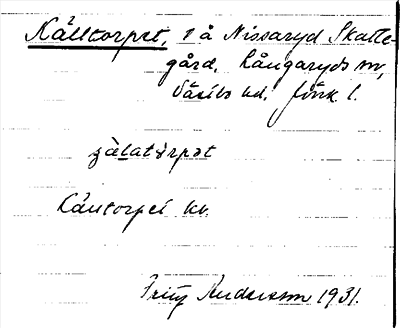 Källtorpet, t å Nissaryd Skatte-
gård, Långaryds sn,
Västbo hd, Jönk. l.
Källtorpet kb.
Fritz Andersson 1931.